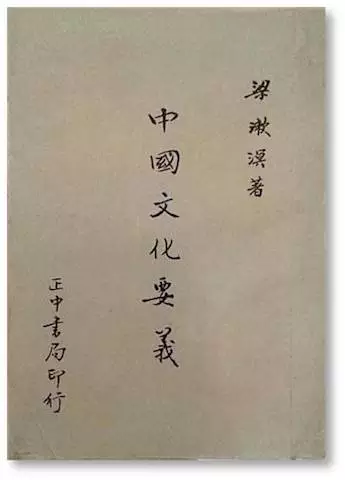 梁漱溟著
中國文化要義
正中書局印行